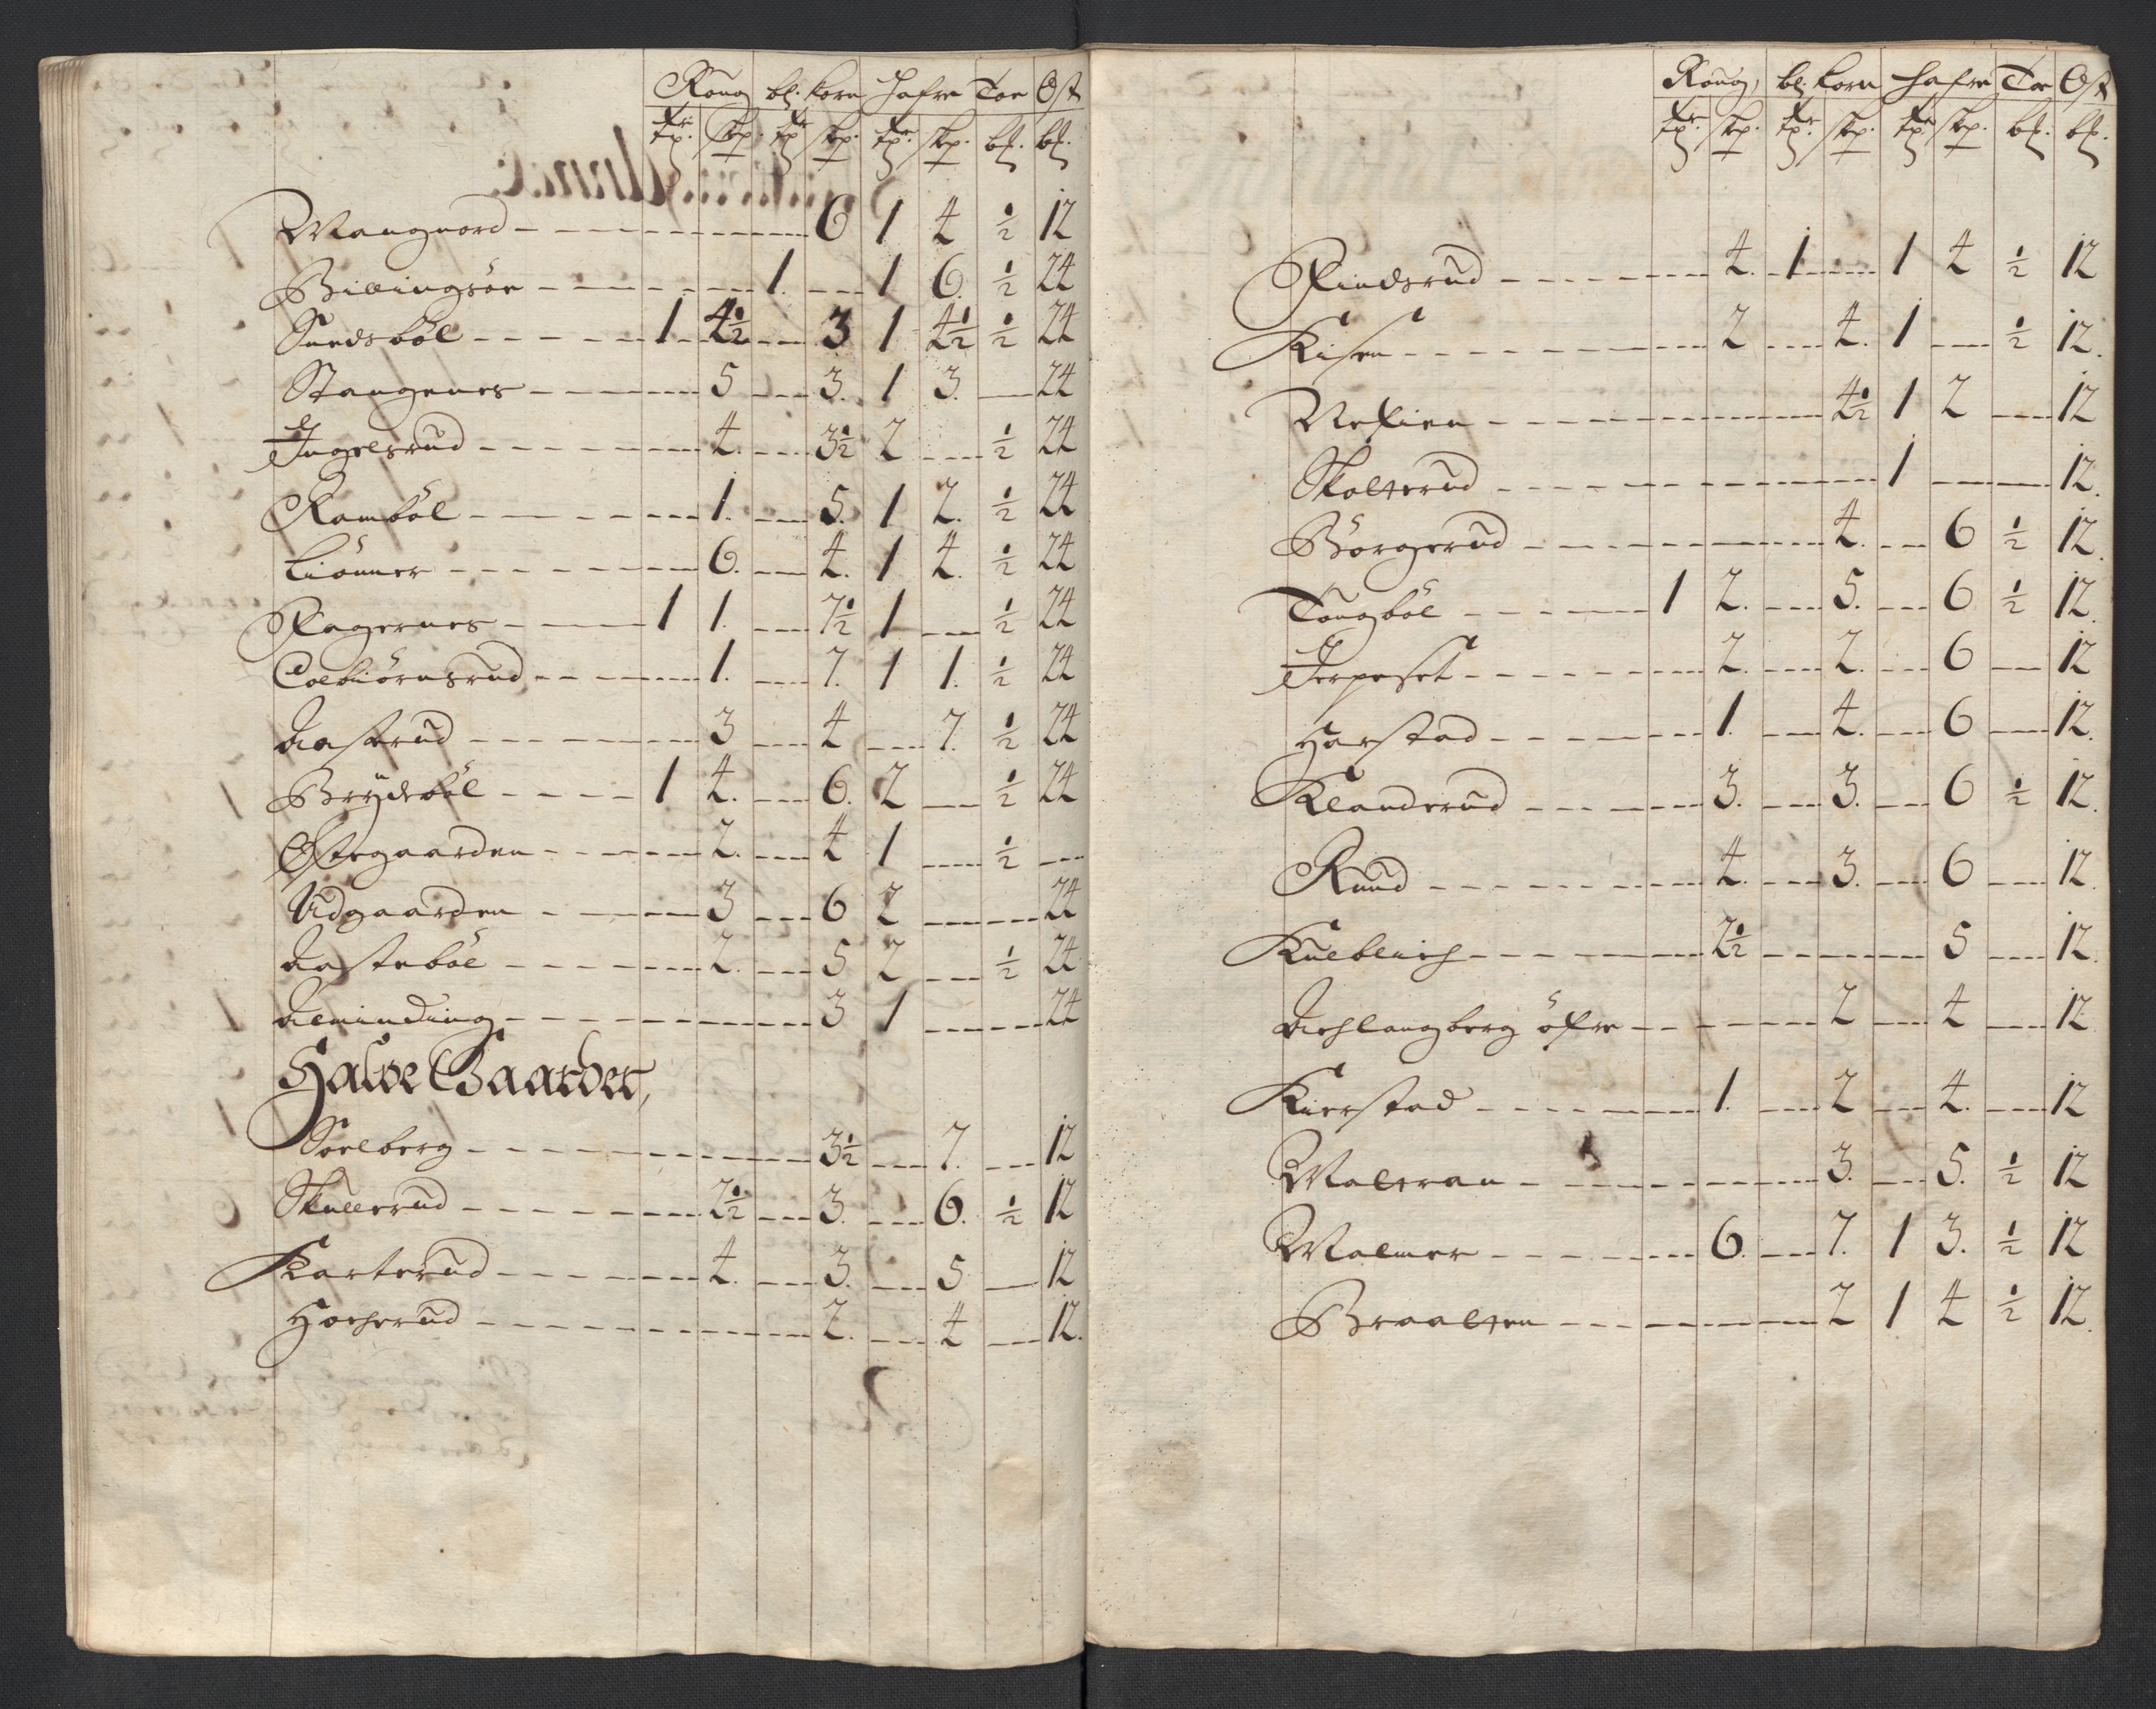 Roug bl. korn Hafre Toe Ost
tr. skp. tr. skp. tr. skp. bl. bl.
Mangnord 6 1 4 ½ 12
Billingsöe 1. 1 6. ½ 24
Sundsböl 1 4½ 3 1 4½ ½ 24
Stangenes 5 3. 1 3. 24
Ingelsrud 4. 3½ 2 ½ 24
Ramböl 1. 5. 1 2. ½ 24
Liönner 6. 4. 1 4. ½ 24
Fagernes 1 1. 7½ 1. ½ 24
Colbiörnsrud 1. 7. 1 1. ½ 24
Aastrud 3 4 7. ½ 24
Brÿdsböl 1 4. 6. 2 ½ 24
Østegaarden 2. 4 1 ½
Udgaarden 3 6 2 24
Aasteböl 2. 5 2 ½ 24
Alminding 3 1 24
Halve Gaarder,
Soelberg 3½ 7. 12
Skullerud 2½ 3. 6. ½ 12
Karterud 4. 3. 5 12
Hocherud 2. 4 12.
Roug, bl. korn Hafre Toe Ost
tr. skp. tr. skp. tr. skp. bl. bl.
Findsrud 4. 1 1 4 ½ 12
Kisen 2 4. 1 ½ 12.
Nefien 4½ 1 2 12
Skolterud 1 12.
Börgerud 4. 6 ½ 12.
Tougböl 1 2. 5. 6 ½ 12.
Jerpeset 2. 2. 6 12
Harstad 1. 4. 6 12.
Klanderud 3. 3. 6 ½ 12.
Ruud 4. 3. 6 12.
Kulblich 2½ 5 12.
Aschlangberg öfre 2 4 12
Kierstad 1. 2 4. 12
Maltran 3. 5. ½ 12
Malmer 6. 7. 1 3. ½ 12
Braalten 2 1 4 ½ 12.